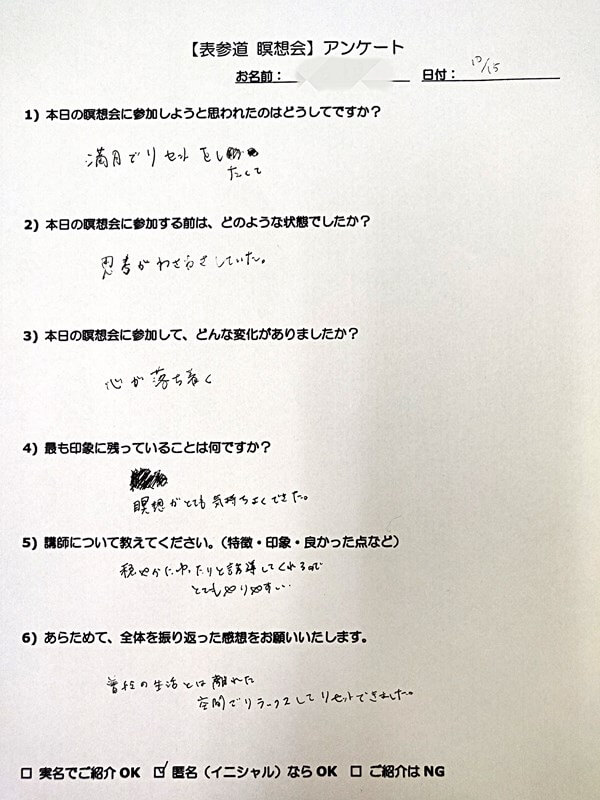 【表参道 瞑想会】アンケート
お名前： 日付： 10/15
1) 本日の瞑想会に参加しようと思われたのはどうしてですか？
満月でリセットをし
たくて
2) 本日の瞑想会に参加する前は、どのような状態でしたか？
思考がわさわさしていた。
3) 本日の瞑想会に参加して、どんな変化がありましたか？
心が落ち着く
4) 最も印象に残っていることは何ですか？
瞑想がとても気持ちよくできた。
5) 講師について教えてください。（特徴・印象・良かった点など）
穏やかにゆったりと誘導してくれるので
とてもやりやすい
6) あらためて、全体を振り返った感想をお願いいたします。
普段の生活とは離れた
空間でリラックスしてリセットできました。
□ 実名でご紹介 OK ☑ 匿名（イニシャル）なら OK □ ご紹介は NG